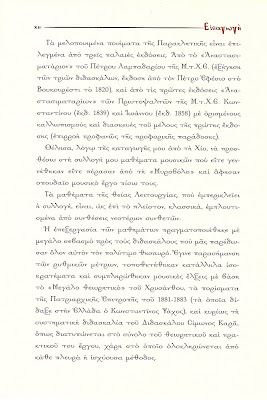 xii
Εἰσαγωγή
Τὰ μελοποιημένα ποιήματα τῆς Παρακλητικῆς εἶναι ἐπι-
λεγμένα ἀπὸ τρεῖς παλαιὲς ἐκδόσεις. Ἀπὸ τὸ «Ἀναστασι-
ματάριον» τοῦ Πέτρου Λαμπαδαρίου τῆς Μ.τ.Χ.Ἐ. (ἐξήγηση
τῶν τριῶν διδασκάλων, ἔκδοση ἀπὸ τὸν Πέτρο Ἐφέσιο στὸ
Βουκουρέστι τὸ 1820), καὶ ἀπὸ τὶς πρῶτες ἐκδόσεις «Ἀνα-
στασιματαρίων» τῶν Πρωτοψαλτῶν τῆς Μ.τ.Χ.Ἐ. Κων-
σταντίνου (ἐκδ. 1839) καὶ Ἰωάννου (ἐκδ. 1858) μὲ ὁρισμένους
καλλωπισμοὺς καὶ διασκευὲς τοῦ μέλους τῆς πρώτης ἐκδο-
σης (ἐπιρροὴ προφανῶς τῆς προφορικῆς παράδοσης).
Θέλησα, λόγω τῆς καταγωγῆς μου ἀπὸ τὴ Χίο, νὰ προ-
σθέσω στὴ συλλογή μου μαθήματα μουσικῶν ποὺ εἴτε γεν-
νήθηκαν εἴτε πέρασαν ἀπὸ τὴ «Μυροβόλο» καὶ ἄφησαν
σπουδαῖο μουσικὸ ἔργο πίσω τους.
Τὰ μαθήματα τῆς θείας Λειτουργίας, ποὺ ἐμπερικλείει
ἡ συλλογή, εἶναι, ὡς ἐπὶ τὸ πλεῖστον, κλασσικά, ἐμπλουτι-
σμένα ἀπὸ συνθέσεις νεοτέρων συνθετῶν.
Ἡ ἐπεξεργασία τῶν μαθημάτων πραγματοποιήθηκε μὲ
μεγάλο σεβασμὸ πρὸς τοὺς διδασκάλους ποὺ μᾶς παρέδω-
σαν ὅλον αὐτὸν τὸν πολύτιμο θησαυρό. Ἔγινε παρασήμανση
τῶν ῥυθμικῶν μέτρων, τοποθετήθηκαν κατάλληλα ἰσο-
κρατήματα καὶ συμπληρώθηκαν μουσικὲς ἕλξεις μὲ βάση
τὸ «Μεγάλο Θεωρητικὸ» τοῦ Χρυσάνθου, τὰ πορίσματα
τῆς Πατριαρχικῆς Ἐπιτροπῆς τοῦ 1881-1883 (τὰ ὁποῖα δί-
δαξε στὴν Ἑλλάδα ὁ Κωνσταντῖνος Ψάχος), καὶ κυρίως τὴ
συστηματικὴ διδασκαλία τοῦ Διδασκάλου Σίμωνος Καρᾶ,
ὅπως διατυπώνεται στὸ σύνολο τοῦ θεωρητικοῦ καὶ πρα-
κτικοῦ του ἔργου, χάρι στὸ ὁποῖο ὁλοκληρώνεται ἀπὸ
κάθε πλευρὰ ἡ ἰσχύουσα μέθοδος.